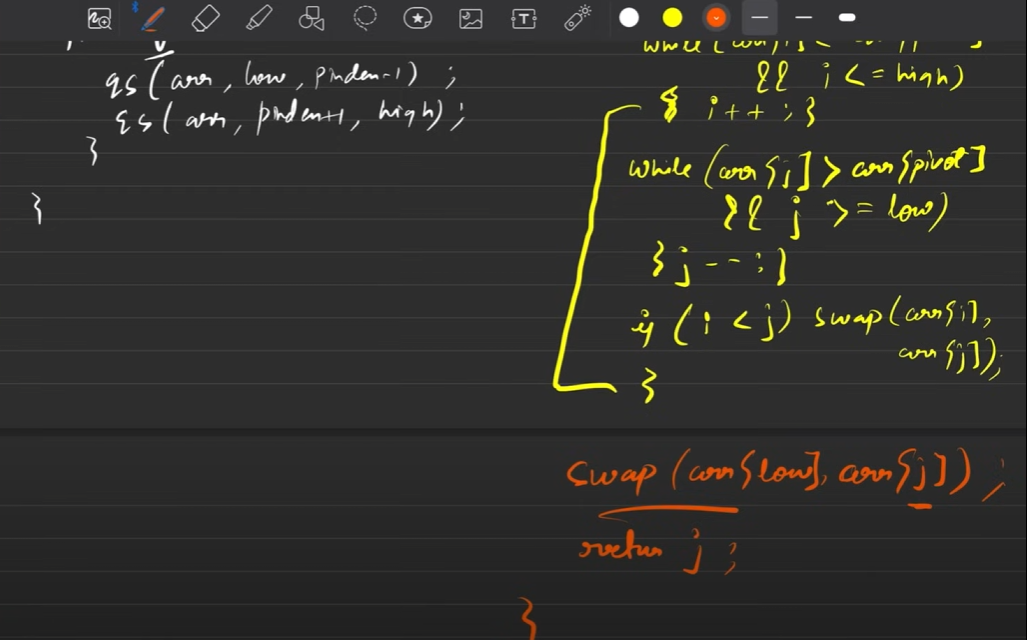 qs(arr, low, pinden-1);
qs(arr, pinden+1, high);
}
}
&& i <= high)
{ i++ ; }
while (arr[j] > arr[pivot]
&& j >= low)
{ j-- ; }
if (i < j) swap(arr[i],
arr[j]);
}
swap(arr[low], arr[j]);
return j ;
}